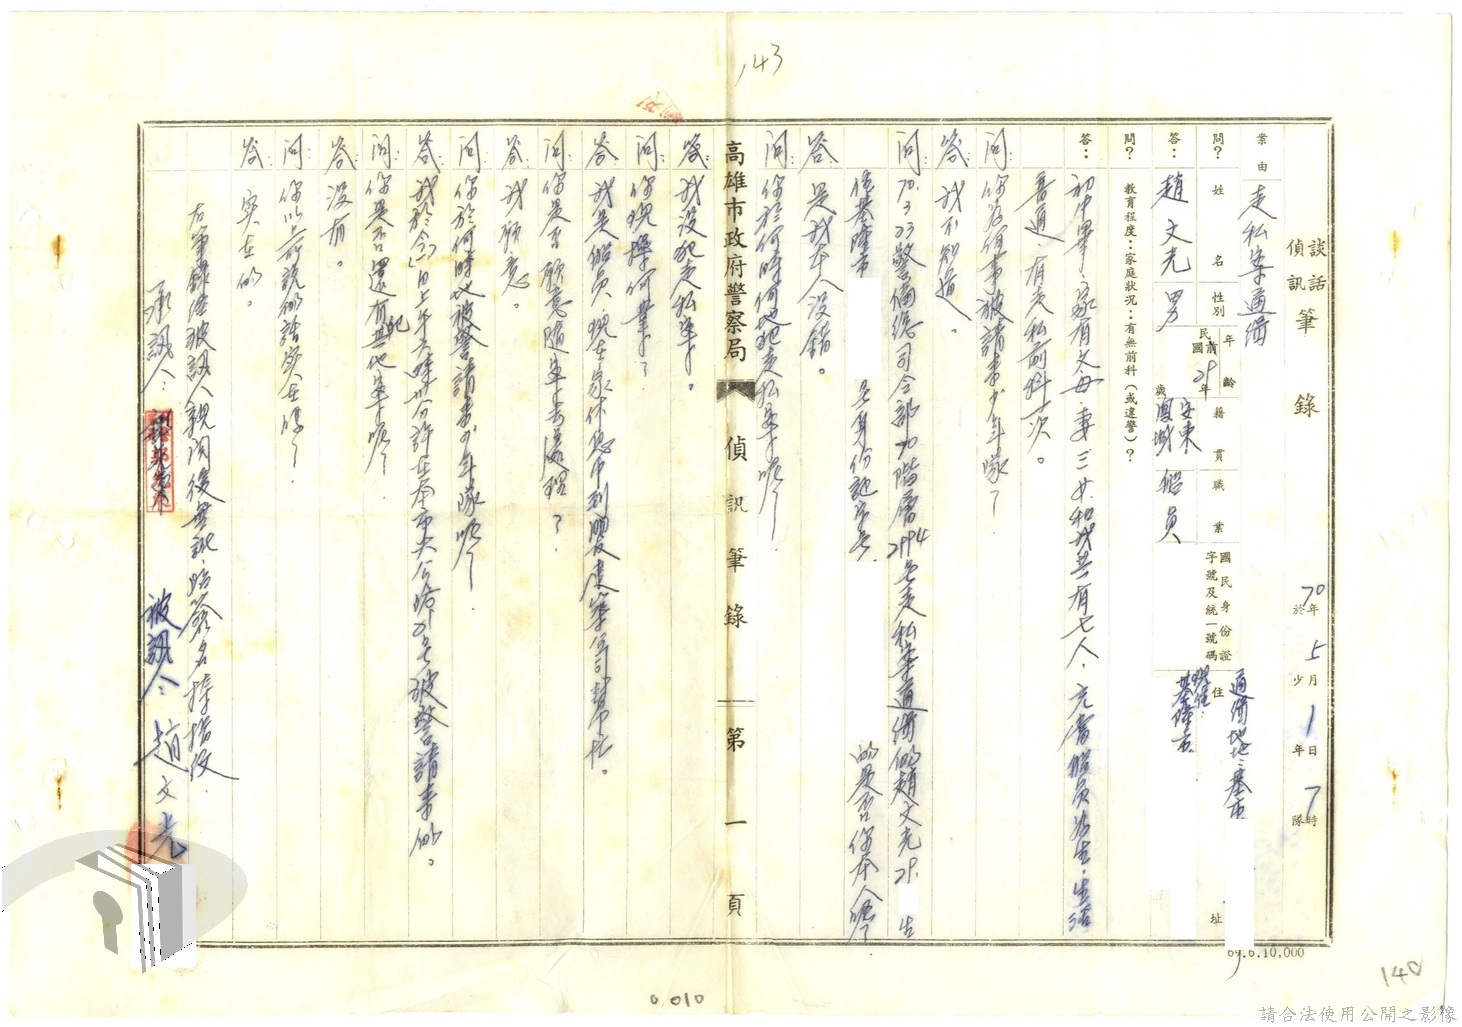 143
談話
偵訊 筆錄
70年5月1日7時
於少年隊
案由 走私案通緝
問? 姓名 性別 年齡 籍貫 職業 國民身份證字號及統一號碼 住址
答: 趙文光 男 民國前29年 歲 安東鳳城 船員
通緝地址:基市
現住:基隆市
問? 教育程度:家庭狀況:有無前科(或違警)?
答: 初中畢、家有父母、妻、三女、和我共有七人,充當船員為生、生活
普通、有走私前科一次。
問: 你為何事被請來少年隊?
答: 我不知道。
問: 70.3.23警備總司令部 階層2994號走私案通緝的趙文光29. 生
住基隆市 號身份証字號 的是否你本人呢?
答 是我本人没錯。
問: 你於何時何地犯走私案呢?
高雄市政府警察局 偵訊筆錄 第一頁
答: 我没犯走私案。
問: 你現操何業?
答 我是船員、現在家休息中到 建築公司幫忙。
問: 你是否願意隨案去處理?
答: 我願意。
問: 你於何時地被警請來少年隊呢?
答: 我於今(1)日上午六時卅分許在本市大公路 號被警請來的。
問: 你是否還有犯其他案呢?
答: 没有。
問: 你以上所說的話实在嗎?
答: 实在的。
右筆錄經被訊人親閱後無訛、始簽名捺指紋
承訊人:
被訊人: 趙文光
69.6.10,000
140
0010
請合法使用公開之影像